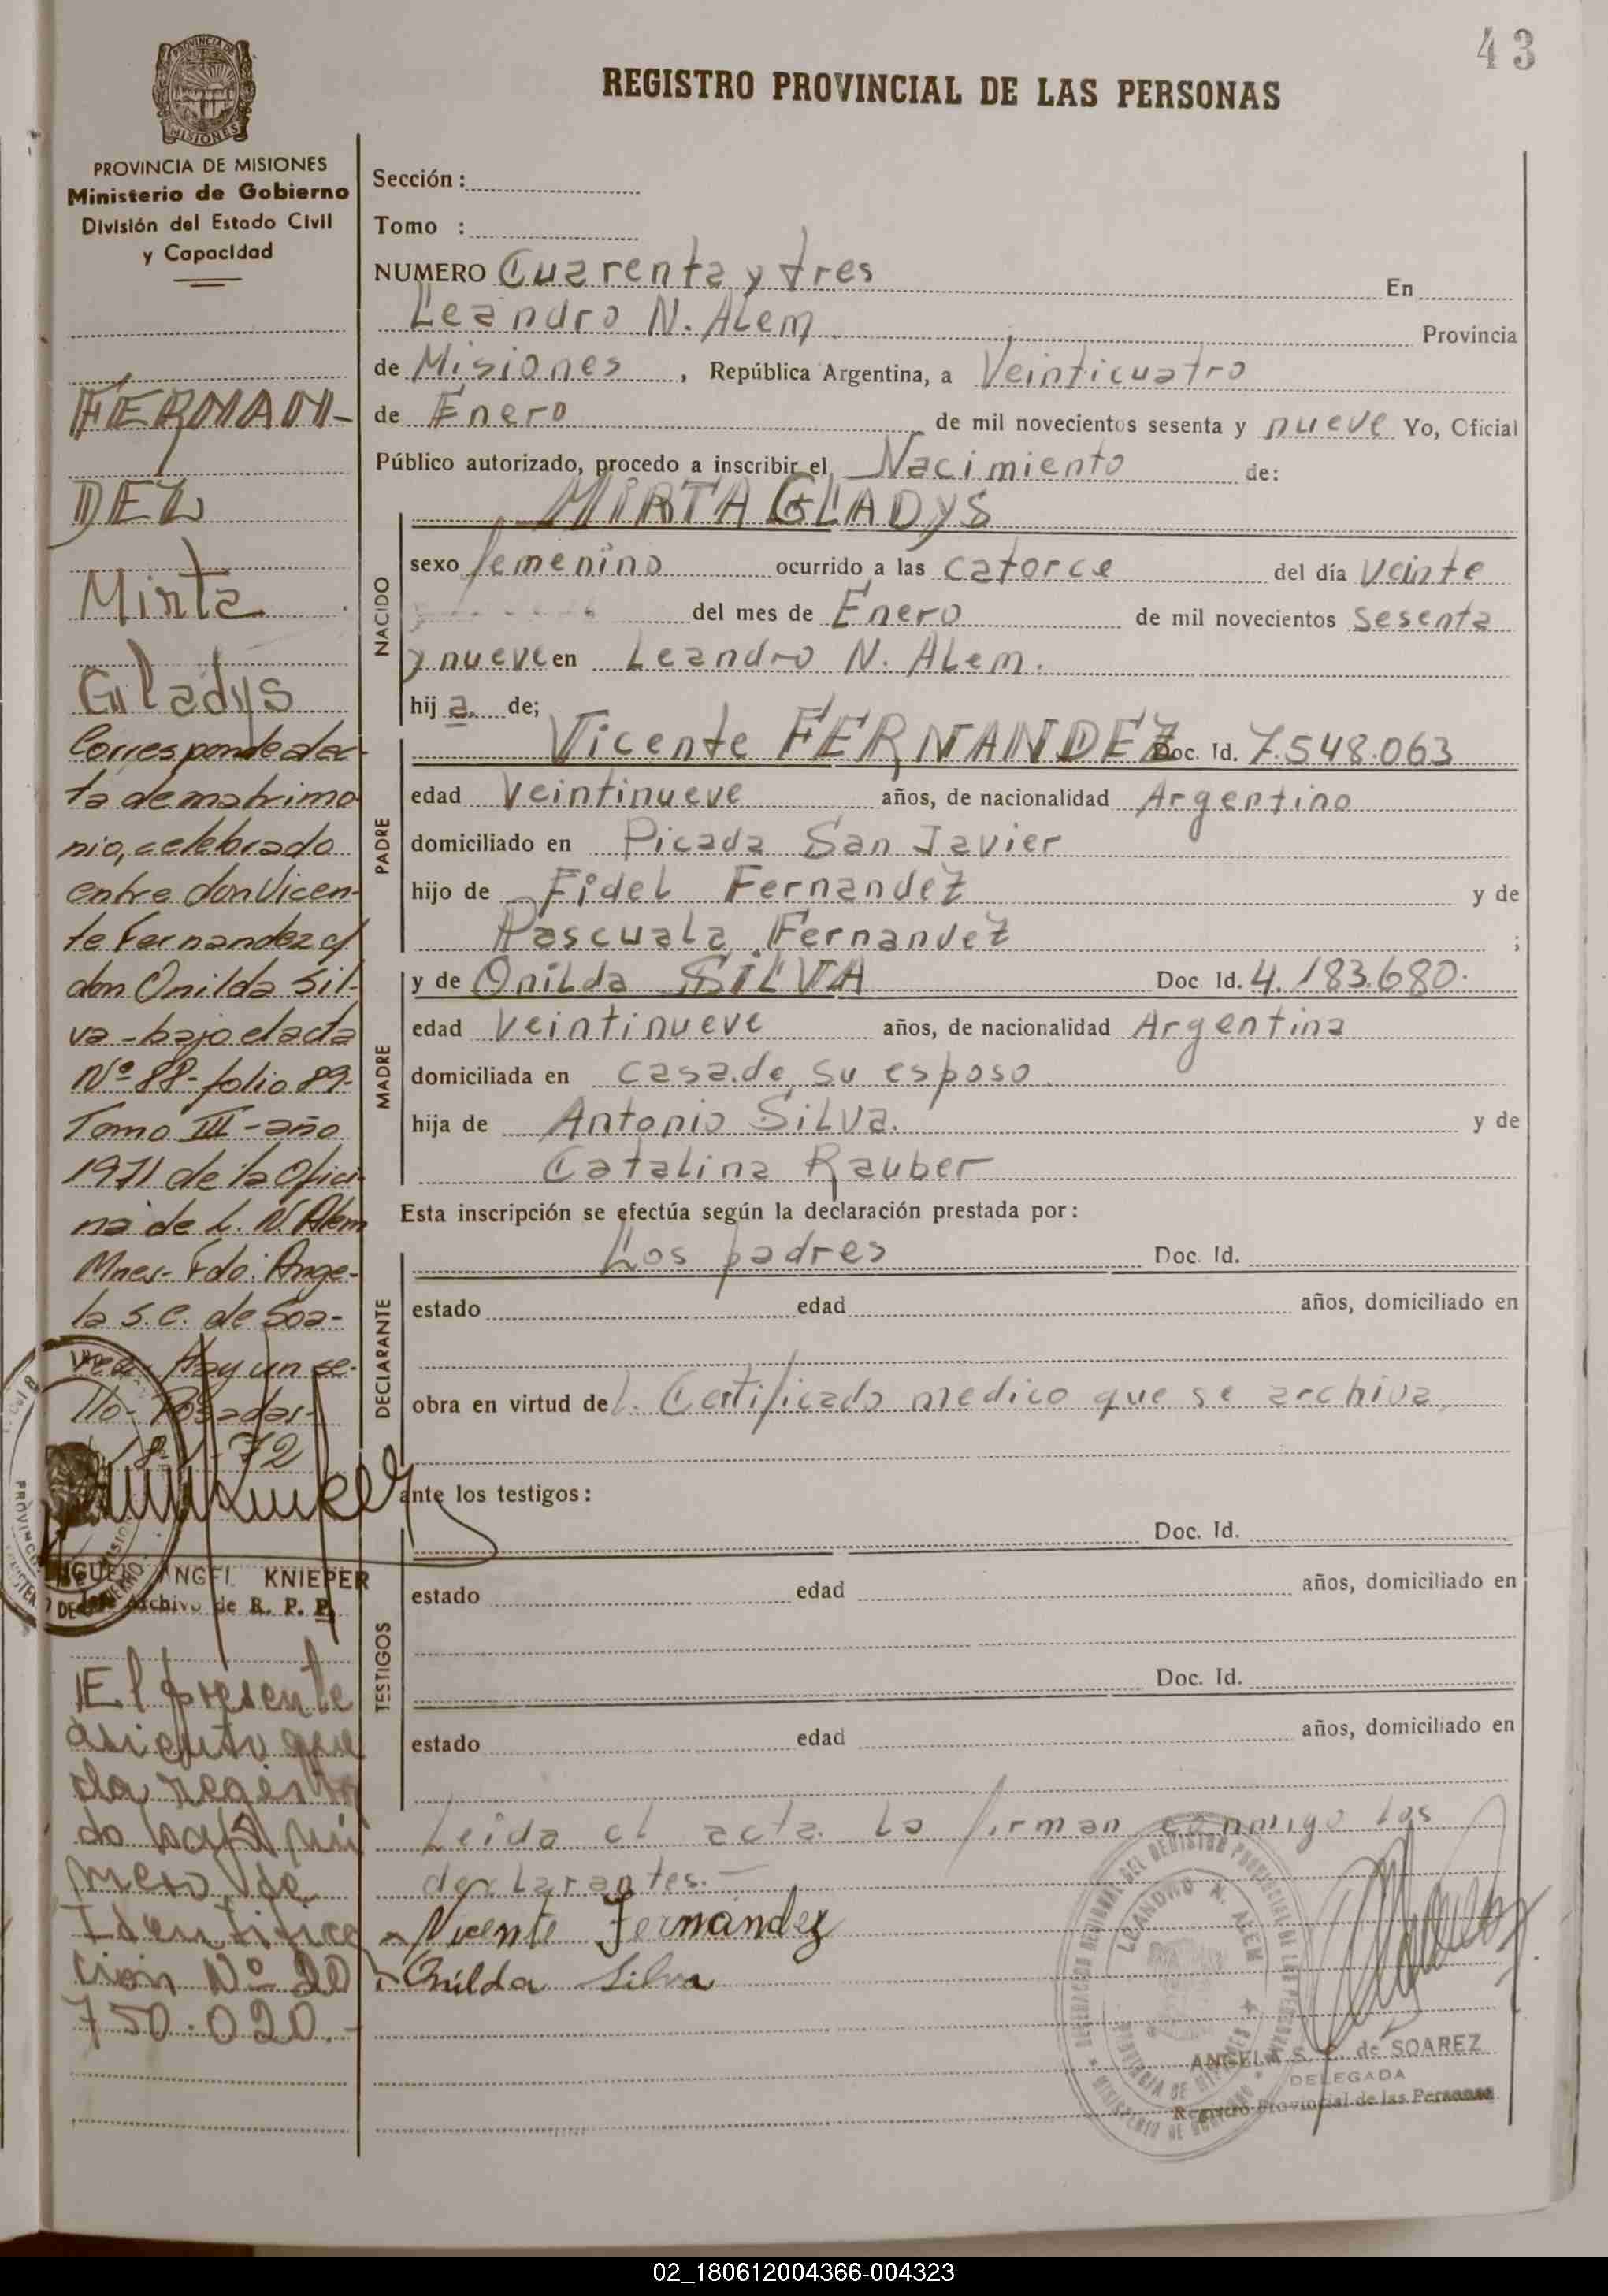 43
REGISTRO PROVINCIAL DE LAS PERSONAS
PROVINCIA DE MISIONES
Ministerio de Gobierno
División del Estado Civil
y Capacidad
FERNAN-
DEZ
Mirta
Gladys
Corresponde al ac-
ta de matrimo
nio, celebrado
entre don Vicen-
te Fernandez c/
don Onilda Sil-
va - bajo el acta
Nº 88 - folio 89-
Tomo III - año
1971 de la Ofici-
na de L. N. Alem
Mnes- Fdo: Ange-
la S. C. de Soa-
rez - Hay un se-
llo - Posadas-
18- 1 - 72
MIGUEL ANGEL KNIEPER
Archivo de R. P. P.
El presente
asiento que
da registra
do bajo nú
mero de
Identifica
ción Nº 20
750.020.-
Sección :
Tomo :
NUMERO Cuarenta y tres En
Leandro N. Alem Provincia
de Misiones , República Argentina, a Veinticuatro
de Enero de mil novecientos sesenta y nueve Yo, Oficial
Público autorizado, procedo a inscribir el Nacimiento de:
MIRTA GLADYS
NACIDO
sexo femenino ocurrido a las catorce del día veinte
del mes de Enero de mil novecientos sesenta
y nueve en Leandro N. Alem.
hij a. de;
PADRE
Vicente FERNANDEZ Doc. Id. 7.548.063
edad veintinueve años, de nacionalidad Argentino
domiciliado en Picada San Javier
hijo de Fidel Fernandez y de
Pascuala Fernandez ;
MADRE
y de Onilda SILVA Doc Id. 4.183.680.
edad veintinueve años, de nacionalidad Argentina
domiciliada en casa de su esposo.
hija de Antonio Silva. y de
Catalina Rauber
Esta inscripción se efectúa según la declaración prestada por:
DECLARANTE
Los padres Doc. Id.
estado edad años, domiciliado en
obra en virtud del. Certificado medico que se archiva.
ante los testigos:
TESTIGOS
Doc. Id.
estado edad años, domiciliado en
Doc. Id.
estado edad años, domiciliado en
Leida el acta la firman conmigo los
declarantes.-
Vicente Fernández
Onilda Silva
DELEGACION REGIONAL DEL REGISTRO PROVINCIAL DE LAS PERSONAS
LEANDRO N. ALEM
PROVINCIA DE MISIONES
MINISTERIO DE GOBIERNO
ANGELA S. C. de SOAREZ
DELEGADA
Registro Provincial de las Personas
02_180612004366-004323